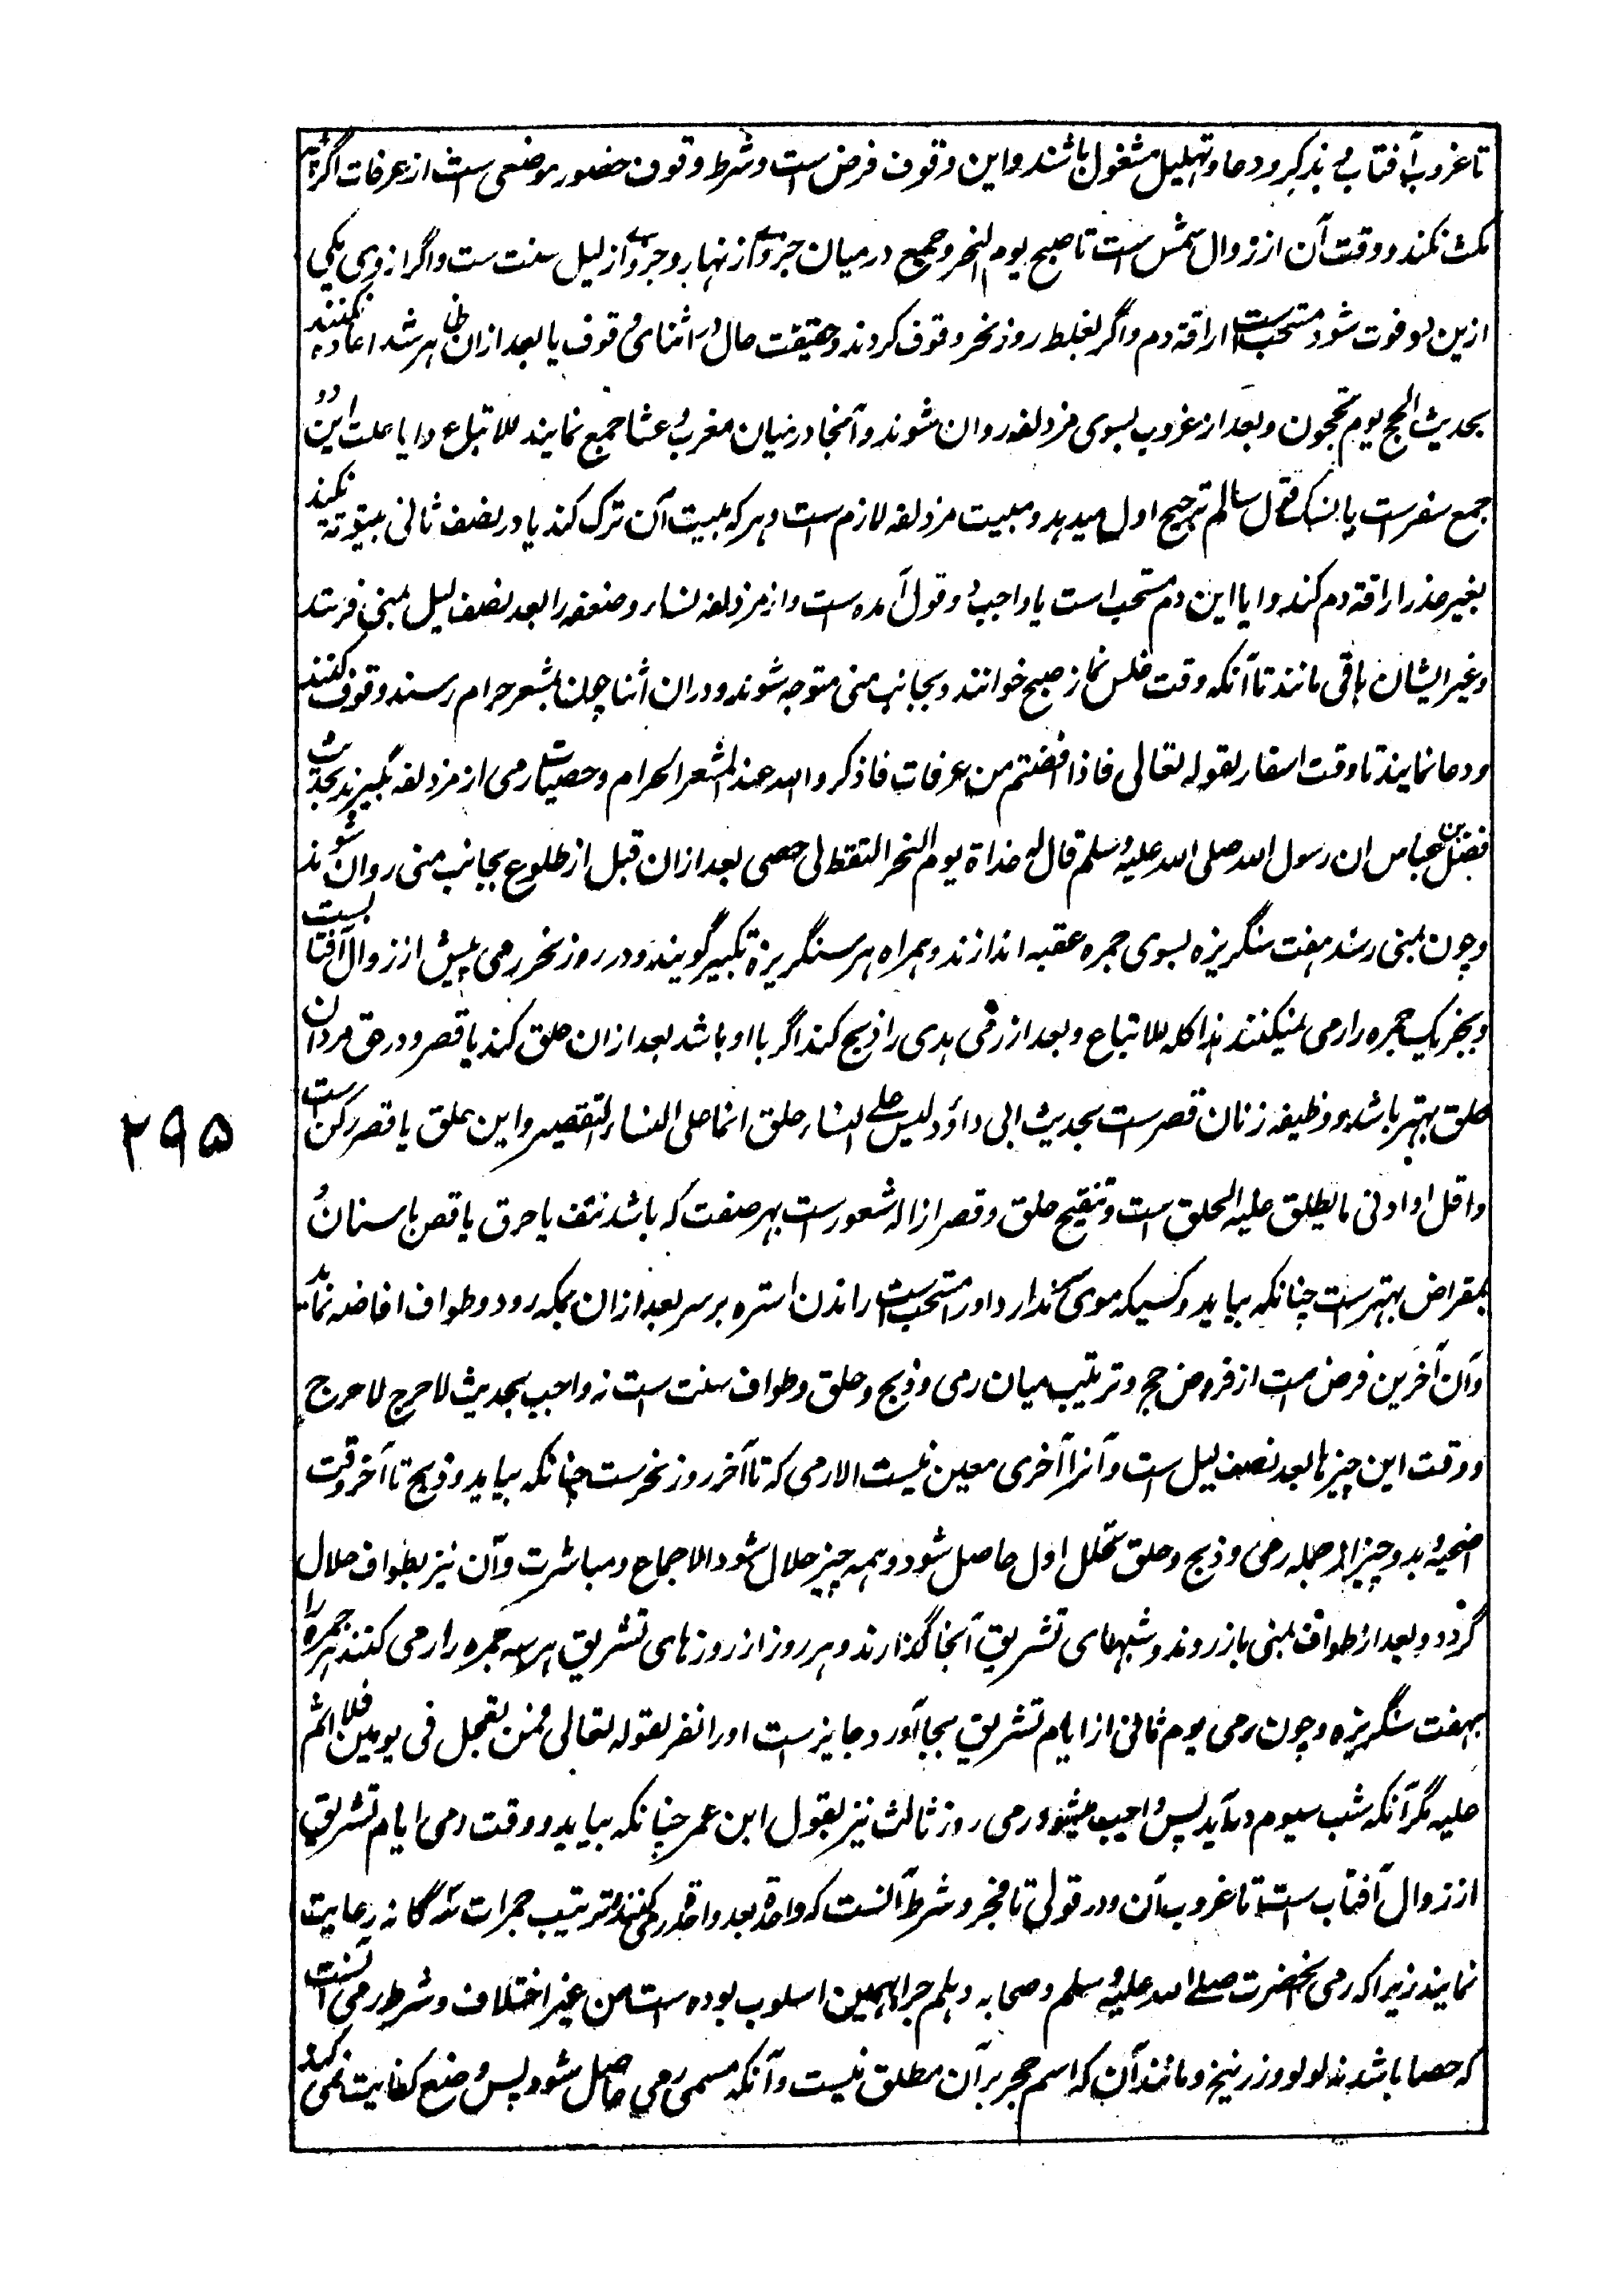 تا غروب آفتاب و بذکر و دعا و تهلیل مشغول باشند و این وقوف فرض است و شرط وقوف حضور موضعی است از عرفات اگرچه
مکث نکند و وقت آن از زوال شمس است تا صبح یوم النحر و جمع درمیان جزوی از نهار و جزوی از لیل سنت ست و اگر از وی یکی
ازین دو فوت شود مستحب است اراقة دم و اگر بغلط روز نحر وقوف کردند و حقیقت حال در اثنای وقوف یا بعد ازان ظاهر شد اعاده نکنند
بحدیث الحج یوم تحجون و بعد از غروب بسوی مزدلفه روان شوند و آنجا درمیان مغرب و عشا جمع نمایند للاتباع و ایا علت این دو
جمع سفرست یا نسک قول سالم ترجیح اول میدهد و مبیت مزدلفه لازم است و هر که مبیت آن ترک کند یا در نصف ثانی بیتوته نکند
بغیر عذر اراقة دم کند و ایا این دم مستحب است یا واجب دو قول آمده ست و از مزدلفه نساء و ضعفه را بعد نصف لیل بمنی فرستند
و غیر ایشان باقی مانند تا آنکه وقت غلس نماز صبح خوانند و بجانب منی متوجه شوند و دران اثنا چون بمشعر حرام رسند وقوف کنند
و دعا نمایند تا وقت اسفار لقوله تعالی فاذا افضتم من عرفات فاذکروا الله عند المشعر الحرام و حصیات رمی از مزدلفه بگیرند بحدیث
فضل بن عباس ان رسول الله صلی الله علیه وسلم قال له غداة یوم النحر التقط لی حصی بعد ازان قبل از طلوع بجانب منی روان شوند
و چون بمنی رسند هفت سنگریزه بسوی جمره عقبه اندازند و همراه هر سنگریزه تکبیر گویند و در روز نحر رمی پیش از زوال آفتاب ست
و بجز یک جمره را رمی نمیکنند هذا کله للاتباع و بعد از رمی هدی را ذبح کند اگر با او باشد بعد ازان حلق کند یا قصر و در حق مردان
حلق بهتر باشد و وظیفه زنان قصرست بحدیث ابی داؤد لیس علی النساء حلق انما علی النساء التقصیر و این حلق یا قصر رکن ست
و اقل او ادنی ما یطلق علیه الحلق است و تنقیح حلق و قصر ازاله شعورست بهر صفت که باشد نتف یا حرق یا قص باسنان و
بمقراض بهترست چنانکه بیاید و کسیکه موی سر ندارد او را مستحب ست راندن استره بر سر بعد ازان بمکه رود و طواف افاضه نماید
و آن آخرین فرض ست از فروض حج و ترتیب میان رمی و ذبح و حلق و طواف سنت ست نه واجب بحدیث لا حرج لا حرج
و وقت این چیزها بعد نصف لیل ست و آنرا آخری معین نیست الا رمی که تا آخر روز نحرست چنانکه بیاید و ذبح تا آخر وقت
اضحیه و بدو چیز از جمله رمی و ذبح و حلق تحلل اول حاصل شود و همه چیز حلال شود الا جماع و مباشرت و آن نیز بطواف حلال
گردد و بعد از طواف بمنی باز روند و شبهای تشریق آنجا گذارند و هر روز از روزهای تشریق هر سه جمره را رمی کنند هر جمره را
بهفت سنگریزه و چون رمی یوم ثانی از ایام تشریق بجا آورد جایز ست او را نفر لقوله تعالی فمن تعجل فی یومین فلا اثم
علیه مگر آنکه شب سیوم درآید پس واجب میشود رمی روز ثالث نیز بقول ابن عمر چنانکه بیاید و وقت رمی ایام تشریق
از زوال آفتاب ست تا غروب آن و در قولی تا فجر و شرط آنست که واحدة بعد واحدة رمی کنند و ترتیب جمرات سه گانه رعایت
نمایند زیرا که رمی آنحضرت صلی الله علیه وسلم و صحابه و هلم جرا بهمین اسلوب بوده ست من غیر اختلاف و شرط رمی آنست
که حصا باشد نه لولو و زرنیخ و مانند آن که اسم حجر بر آن مطلق نیست و آنکه مسمی رمی حاصل شود پس وضع کفایت نمی کند و
۲۹۵